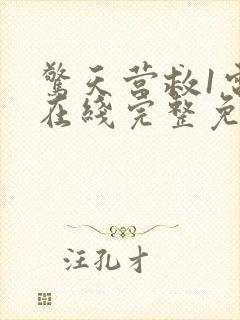 驚天营救1电
在綫完整免
汪孔才